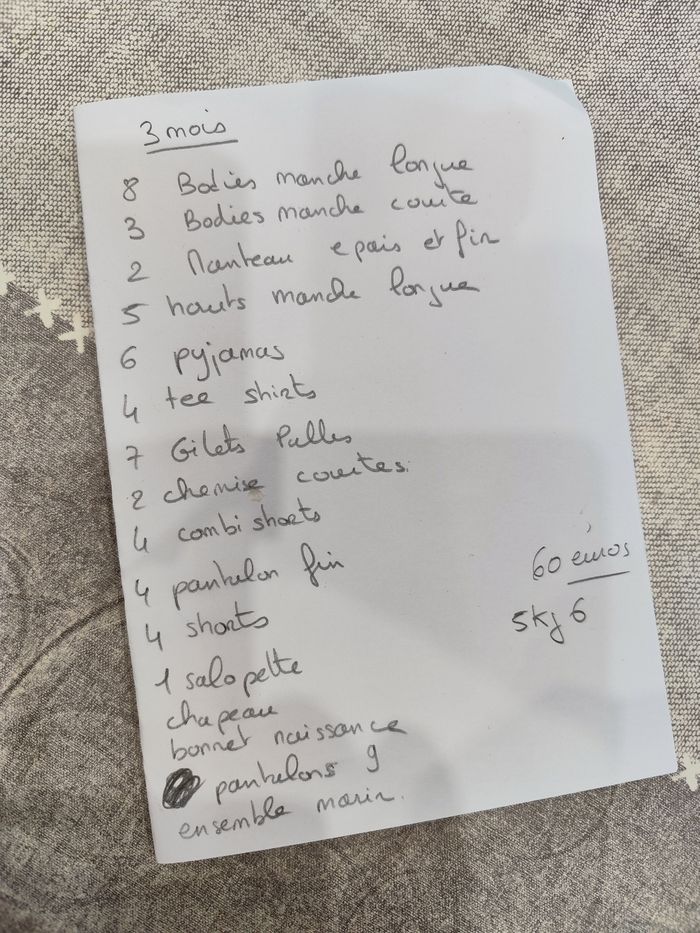 3 mois
8 Bodies manche longue
3 Bodies manche courte
2 Manteau epais et fin
5 hauts manche longue
6 pyjamas
4 tee shirts
7 Gilets Pulles
2 chemise courtes
4 combi shorts
4 pantalon fin
60 euros
4 shorts
5kg 6
1 salopette
chapeau
bonnet naissance
pantalons 9
ensemble marin.